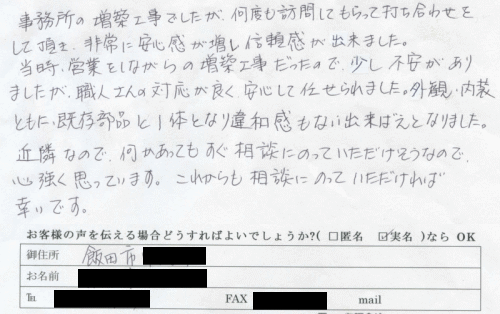 事務所の増築工事でしたが、何度も訪問してもらって打ち合わせを
して頂き、非常に安心感が増し信頼感が出来ました。
当時、営業をしながらの増築工事だったので、少し不安があり
ましたが、職人さんの対応が良く、安心して任せられました。外観・内装
ともに、既存部品と1体となり違和感もない出来ばえとなりました。
近隣なので、何かあってもすぐ相談にのっていただけそうなので、
心強く思っています。これからも相談にのっていただければ
幸いです。
お客様の声を伝える場合どうすればよいでしょうか?( □匿名 ☑実名 )なら OK
御住所 飯田市
お名前
℡ FAX mail